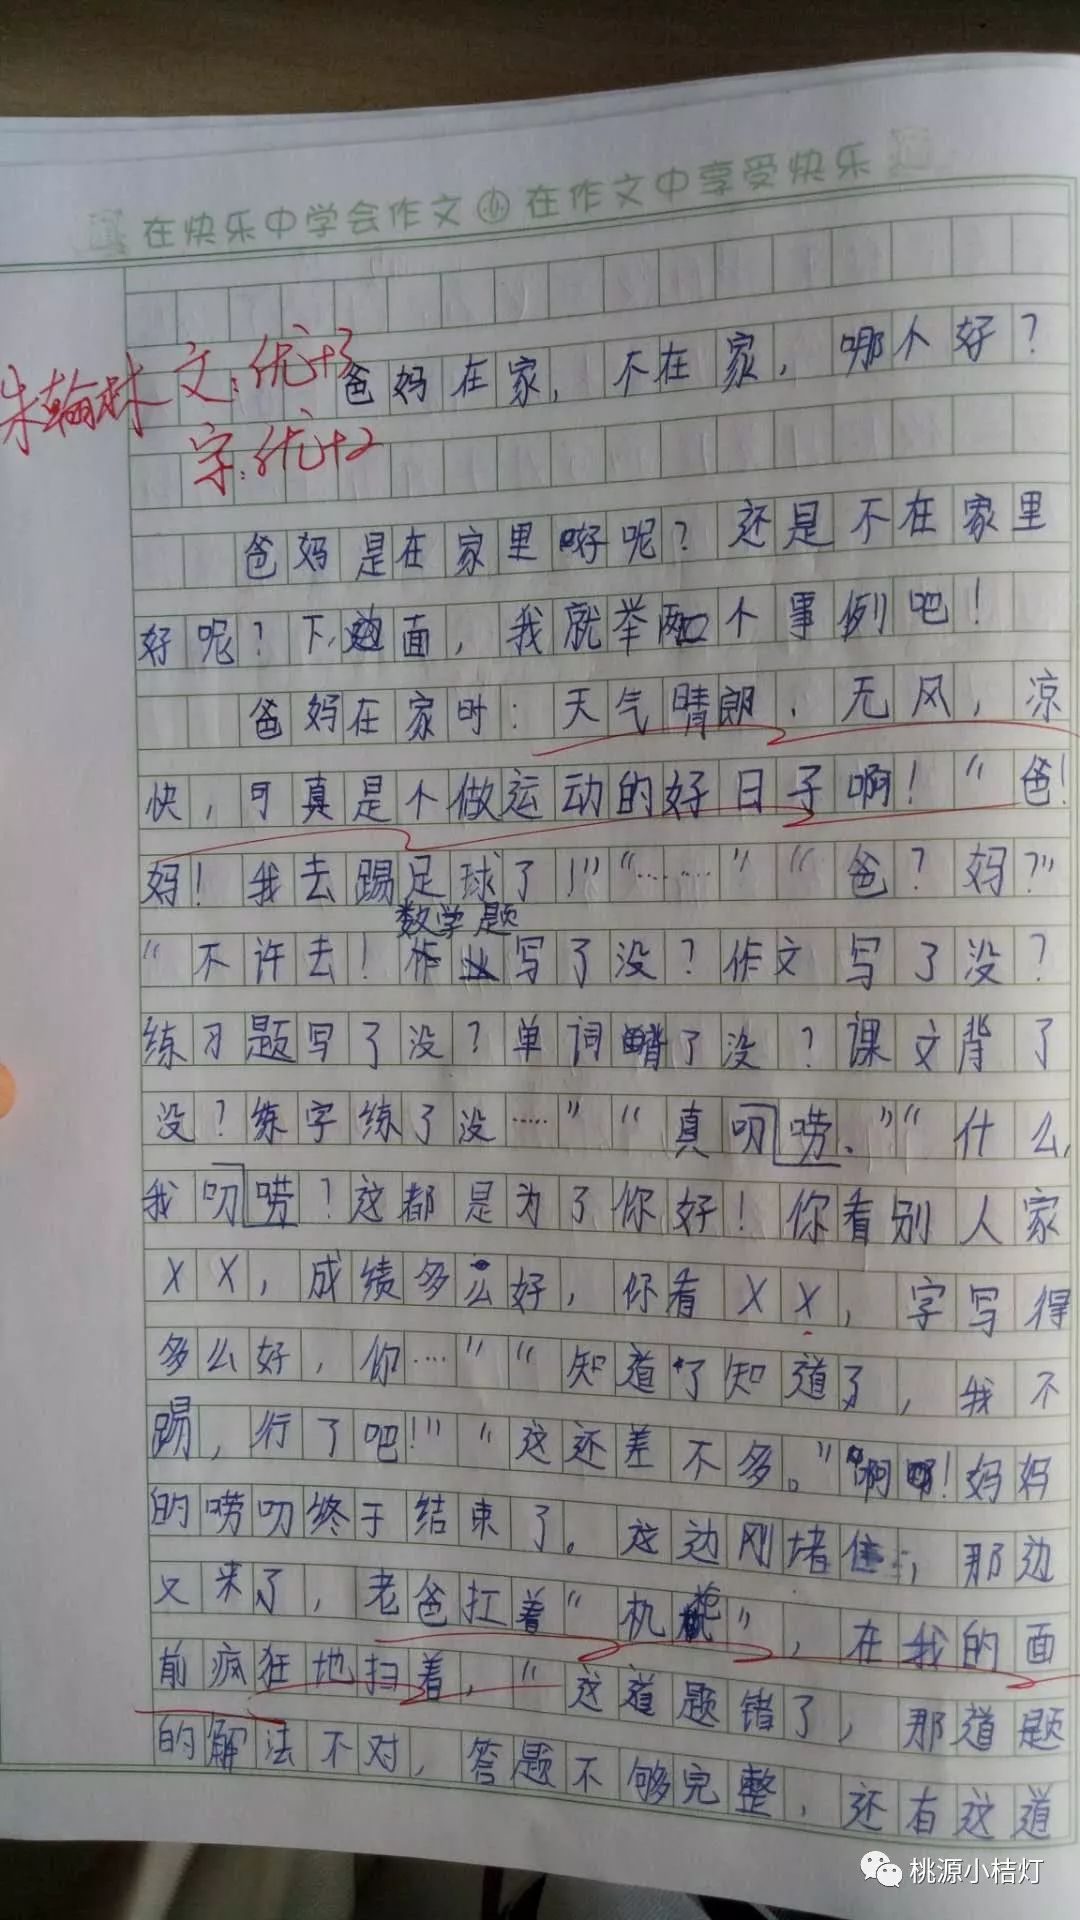 在快乐中学会作文 小 在作文中享受快乐
朱翰林 文:优+3
爸妈在家,不在家,哪个好?
字:优+2
爸妈是在家里好呢?还是不在家里
好呢?下面,我就举两个事例吧!
爸妈在家时:天气晴朗,无风,凉
快,可真是个做运动的好日子啊!“爸!
妈!我去踢足球了!”“……”“爸?妈?”
数学题
“不许去!作业写了没?作文写了没?
练习题写了没?单词背了没?课文背了
没?练字练了没……”“真叨唠。”“什么,
我叨唠?这都是为了你好!你看别人家
XX,成绩多么好,你看XX,字写得
多么好,你……”“知道了知道了,我不
踢,行了吧!”“这还差不多。”啊!妈妈
的唠叨终于结束了。这边刚堵住,那边
又来了,老爸扛着“机枪”,在我的面
前疯狂地扫着,“这道题错了,那道题
的解法不对,答题不够完整,还有这道
桃源小桔灯